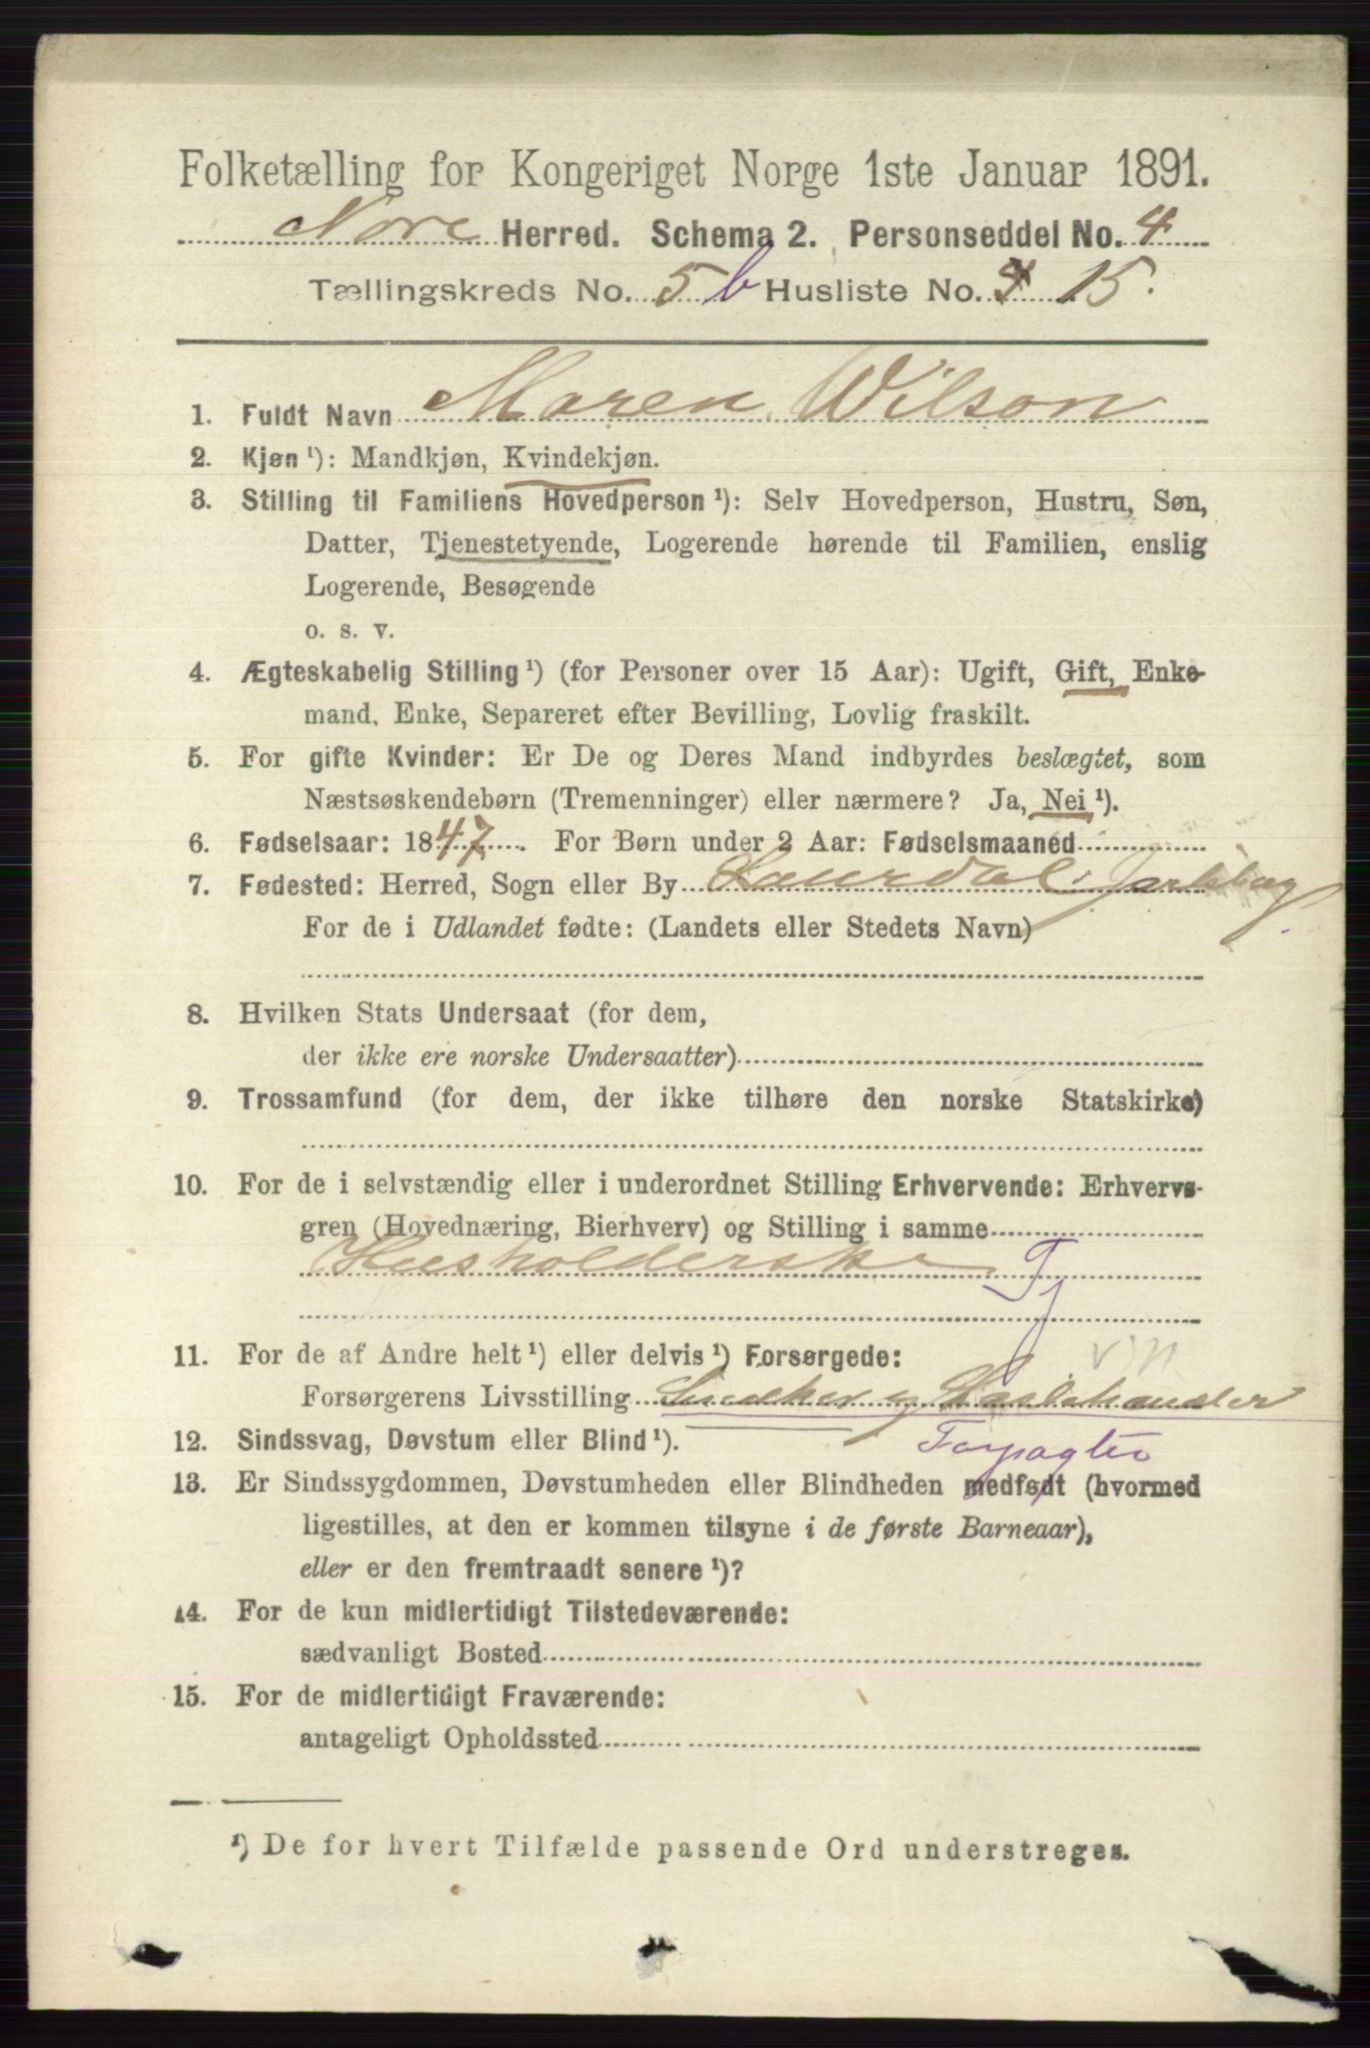 Folketælling for Kongeriget Norge 1ste Januar 1891.
Nore Herred. Schema 2. Personseddel No. 4
Tællingskreds No. 5 b Husliste No. 4 15.
1. Fuldt Navn Maren Wilson
2. Kjøn ¹): Mandkjøn, Kvindekjøn.
3. Stilling til Familiens Hovedperson ¹): Selv Hovedperson, Hustru, Søn,
Datter, Tjenestetyende, Logerende hørende til Familien, enslig
Logerende, Besøgende
o. s. v.
4. Ægteskabelig Stilling ¹) (for Personer over 15 Aar): Ugift, Gift, Enke-
mand, Enke, Separeret efter Bevilling, Lovlig fraskilt.
5. For gifte Kvinder: Er De og Deres Mand indbyrdes beslægtet, som
Næstsøskendebørn (Tremenninger) eller nærmere? Ja, Nei ¹).
6. Fødselsaar: 1847. For Børn under 2 Aar: Fødselsmaaned
7. Fødested: Herred, Sogn eller By Laurdal Jarlsberg
For de i Udlandet fødte: (Landets eller Stedets Navn)
8. Hvilken Stats Undersaat (for dem,
der ikke ere norske Undersaatter)
9. Trossamfund (for dem, der ikke tilhøre den norske Statskirke)
10. For de i selvstændig eller i underordnet Stilling Erhvervende: Erhvervs-
gren (Hovednæring, Bierhverv) og Stilling i samme
Husholderske Tj
11. For de af Andre helt ¹) eller delvis ¹) Forsørgede:
Forsørgerens Livsstilling Snedker og
12. Sindssvag, Døvstum eller Blind ¹). Forpagter
13. Er Sindssygdommen, Døvstumheden eller Blindheden medfødt (hvormed
ligestilles, at den er kommen tilsyne i de første Barneaar),
eller er den fremtraadt senere ¹)?
14. For de kun midlertidigt Tilstedeværende:
sædvanligt Bosted
15. For de midlertidigt Fraværende:
antageligt Opholdssted
¹) De for hvert Tilfælde passende Ord understreges.